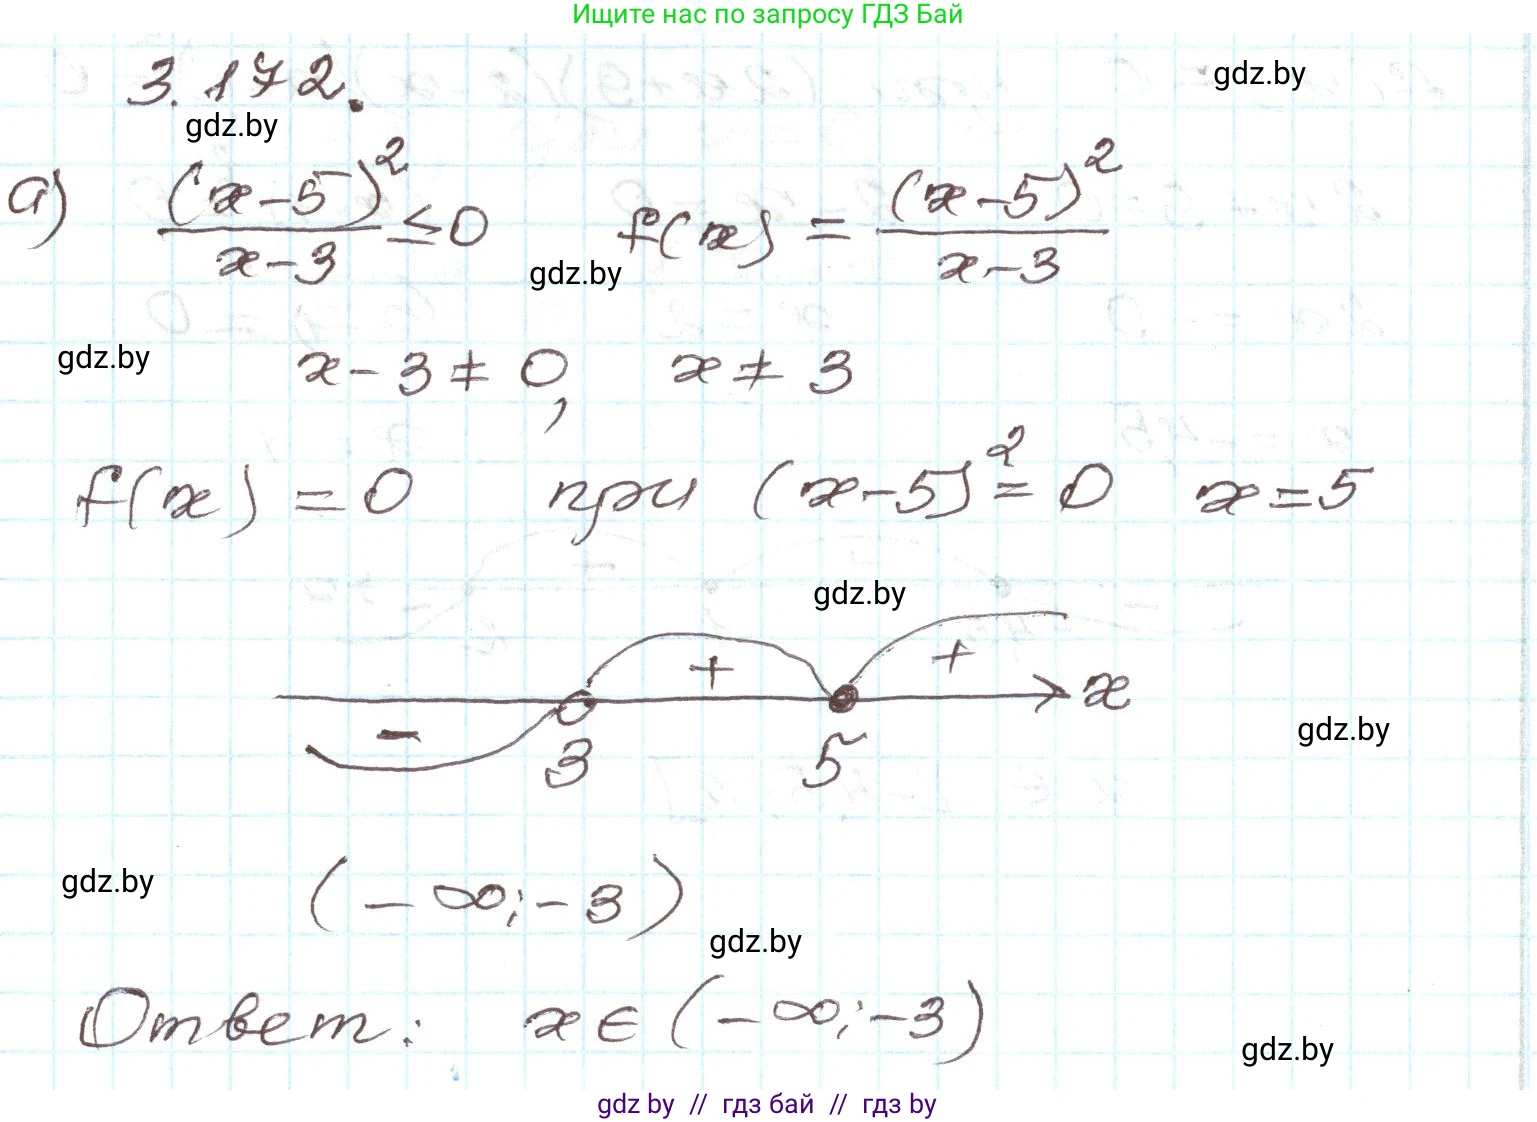 Ищите нас по запросу ГДЗ Бай
3.172.
gdz.by
gdz.by
а) (x-5)²/(x-3) ≤ 0 f(x) = (x-5)²/(x-3)
gdz.by
gdz.by
x-3≠0, x≠3
f(x)=0 при (x-5)²=0 x=5
gdz.by
- + + x
3 5
gdz.by
gdz.by
(-∞;-3)
gdz.by
Ответ: x∈(-∞;-3)
gdz.by
gdz by // гдз бай // гдз by